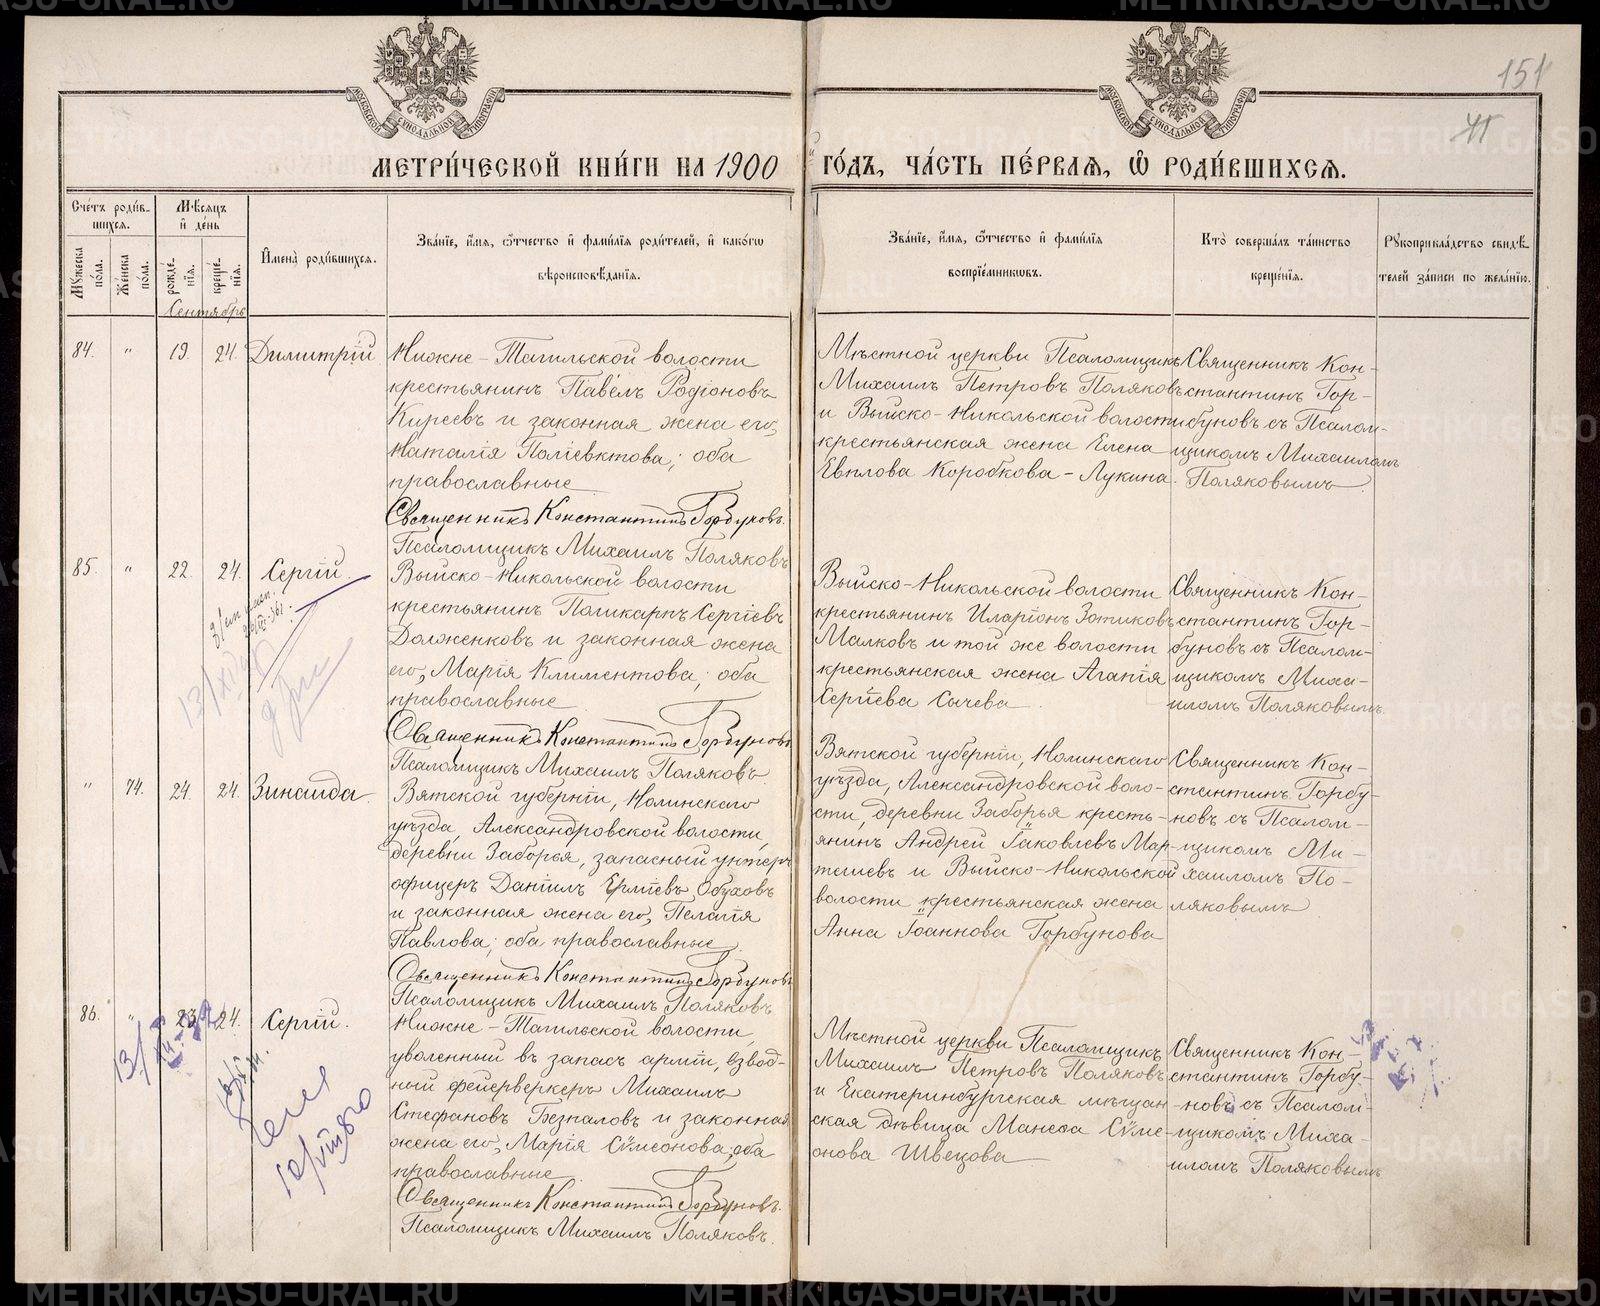 151
МЕТРИ́ЧЕСКОЙ КНИ́ГИ НА 1900 ГО́ДЪ, ЧА́СТЬ ПЕ́РВАЯ, Ѡ РОДИ́ВШИХСЯ.
Сче́тъ роди́в-
шихся.
Му́жеска по́ла.
Же́нска по́ла.
Мѣ́сяцъ и де́нь
рожде́нїя.
креще́нїя.
И҆мена̀ роди́вшихся.
Зва́нїе, и҆́мя, ѻ҆́тчество и҆ фами́лїя роди́телей, и҆ како́гѡ
вѣроисповѣ́данїя.
Зва́нїе, и҆́мя, ѻ҆́тчество и҆ фами́лїя
воспрїе́мникѡвъ.
Кто̀ соверша́лъ та́инство
креще́нїя.
Рꙋкоприкла́дство свидѣ́-
телей за́писи по жела́нїю.
Сентябрь
84. " 19. 24. Димитрій
Нижне-Тагильской волости
крестьянинъ Павелъ Родіоновъ
Киреевъ и законная жена его,
Наталія Поліевктова; оба
православные
Священникъ Константинъ Горбуновъ.
Псаломщикъ Михаилъ Поляковъ
Мѣстной церкви Псаломщикъ
Михаилъ Петровъ Поляковъ
и Выйско-Никольской волости
крестьянская жена Елена
Евплова Коробкова-Лукина.
Священникъ Кон-
стантинъ Гор-
буновъ съ Псалом-
щикомъ Михаиломъ
Поляковымъ
85. " 22. 24. Сергій.
Выйско-Никольской волости
крестьянинъ Поликарпъ Сергіевъ
Долженковъ и законная жена
его, Марія Климентова; оба
православные
Священникъ Константинъ Горбуновъ
Псаломщикъ Михаилъ Поляковъ
Выйско-Никольской волости
крестьянинъ Иларіонъ Зотиковъ
Малковъ и той же волости
крестьянская жена Агапія
Сергіева Сычева
Священникъ Кон-
стантинъ Гор-
буновъ съ Псалом-
щикомъ Миха-
иломъ Поляковымъ.
" 74. 24. 24. Зинаида.
Вятской губерніи, Нолинскаго
уѣзда, Александровской волости,
деревни Заборья, запасный унтеръ
офицеръ Даніилъ Ерміевъ Обуховъ
и законная жена его, Пелагія
Павлова; оба православные
Священникъ Константинъ Горбуновъ
Псаломщикъ Михаилъ Поляковъ
Вятской губерніи, Нолинскаго
уѣзда, Александровской воло-
сти, деревни Заборья кресть-
янинъ Андрей Іаковлевъ Мар-
тешевъ и Выйско-Никольской
волости крестьянская жена
Анна Іоаннова Горбунова
Священникъ Кон-
стантинъ Горбу-
новъ съ Псалом-
щикомъ Ми-
хаиломъ По-
ляковымъ
86. " 23. 24. Сергій.
Нижне-Тагильской волости,
уволенный въ запасъ арміи, взвод-
ный фейерверкеръ Михаилъ
Стефановъ Безпаловъ и законная
жена его, Марія Сѵмеонова; оба
православные
Священникъ Константинъ Горбуновъ.
Псаломщикъ Михаилъ Поляковъ.
Мѣстной церкви Псаломщикъ
Михаилъ Петровъ Поляковъ
и Екатеринбургская мѣщан
ская дѣвица Манеѳа Сѵме-
онова Швецова
Священникъ Кон-
стантинъ Горбу-
-новъ съ Псалом-
щикомъ Миха-
иломъ Поляковымъ
METRIKI.GASO-URAL.RU